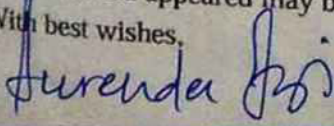 appeared may b
With best wishes,
Surender